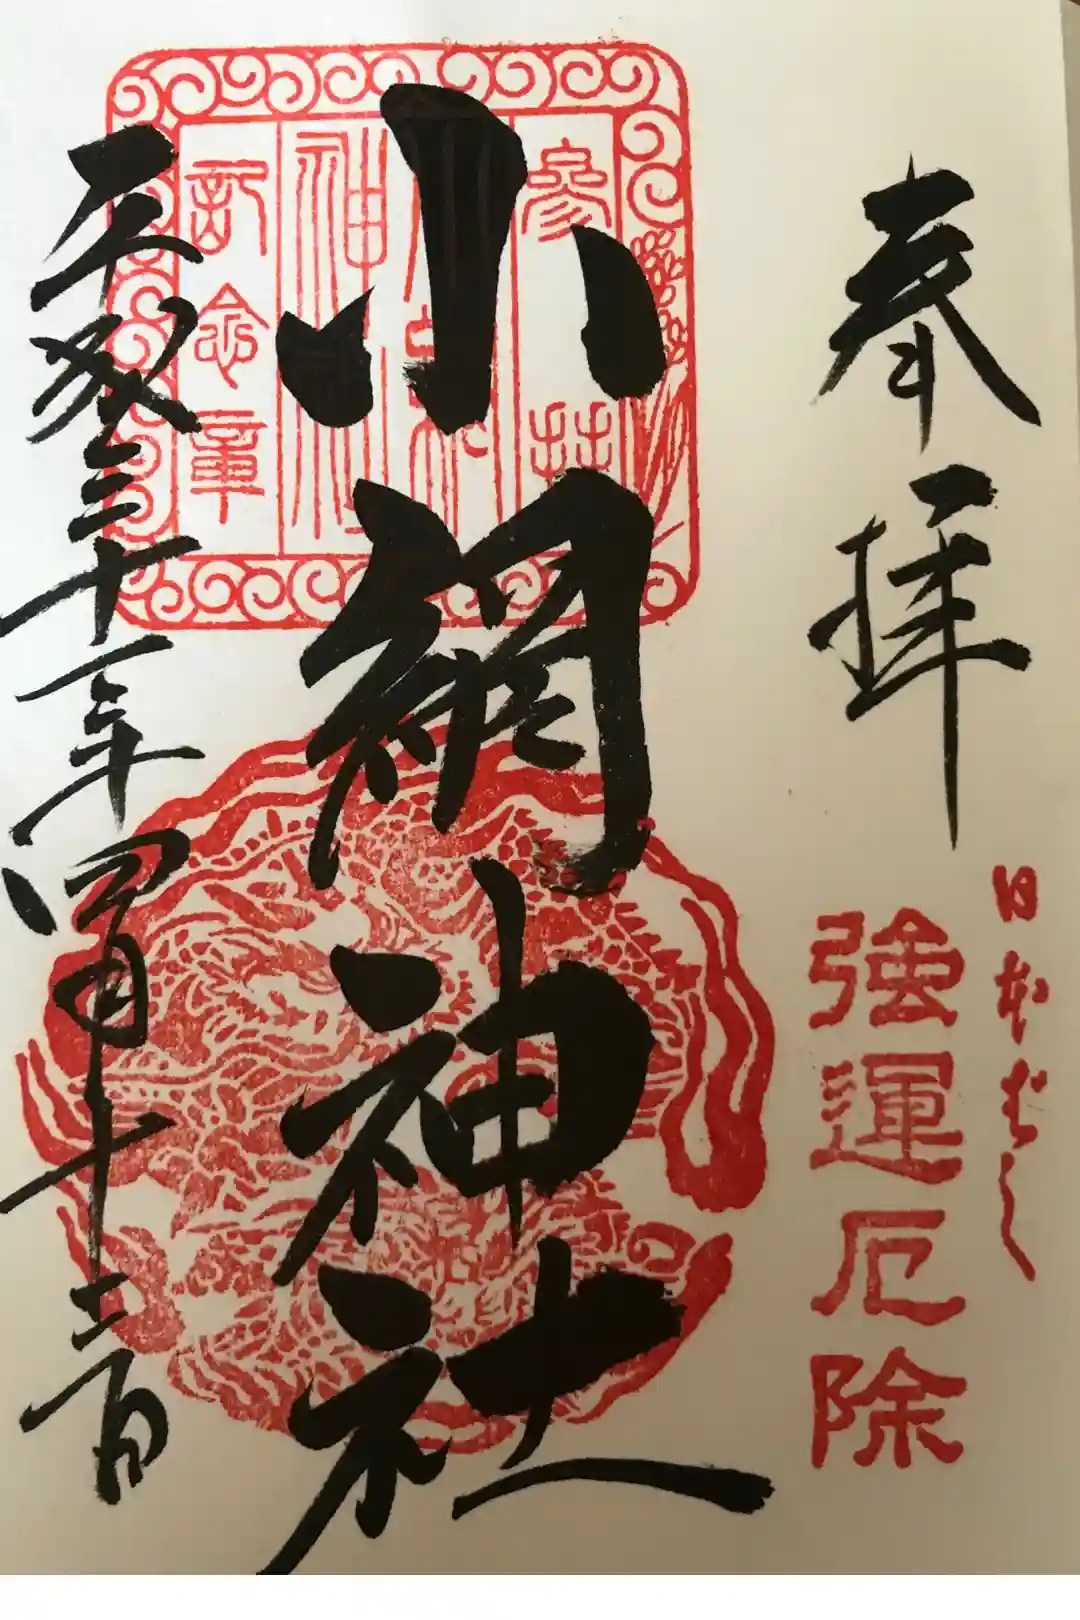 奉拝
日本ばし
強運厄除
小網神社
参拝
神社
記念章
平成三十一年四月十三日